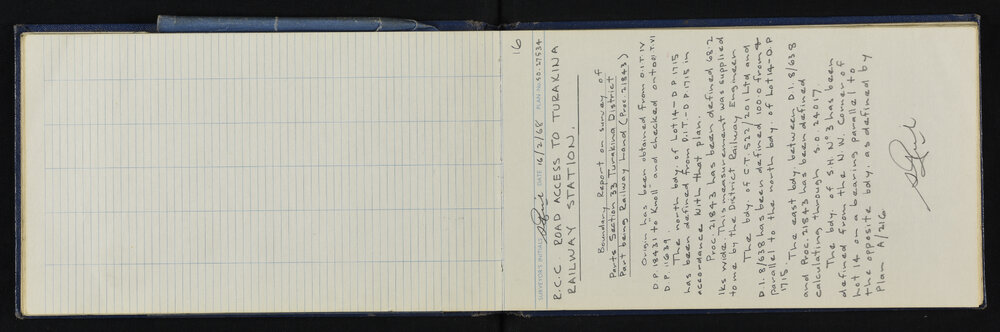 16
SURVEYOR'S INITIALS DATE 16/2/68 PLAN No. S.O. 27534
R.C.C. ROAD ACCESS TO TURAKINA
RAILWAY STATION.
Boundary Report on survey of
Parts Section 33 Turakina District
Part being Railway Land (Proc. 21843)
Origin has been obtained from O.I.T. IV
D.P. 18431 to "Knoll" and checked onto O.I.T. VI
D.P. 11639.
The north bdy. of Lot 14 - D.P. 1715
has been defined from D.I.T. - D.P. 1715 in
accordance with that plan.
Proc. 21843 has been defined 68.2
lks wide. This measurement was supplied
to me by the District Railway Engineer
The bdy. of C.T. 522/201 Ltd and
D.I. 8/638 has been defined 100.0 from &
parallel to the north bdy. of Lot 14 - D.P.
1715.
The east bdy between D.I. 8/638
and Proc. 21843 has been defined
calculating through S.O. 24017.
The bdy. of S.H. No 3 has been
defined from the N.W. Corner of
Lot 14 on a bearing parallel to
the opposite bdy. as defined by
Plan A/216.